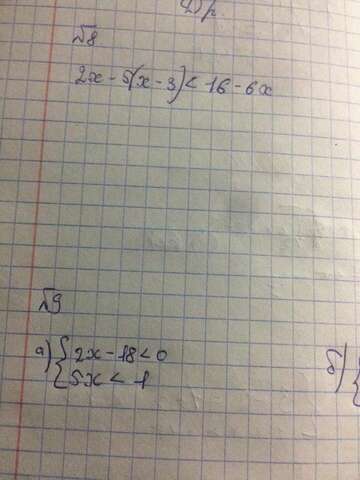 Др.
№8
2x - 5(x - 3) < 16 - 6x
№9
а) { 2x - 18 < 0
5x < 1
б) {